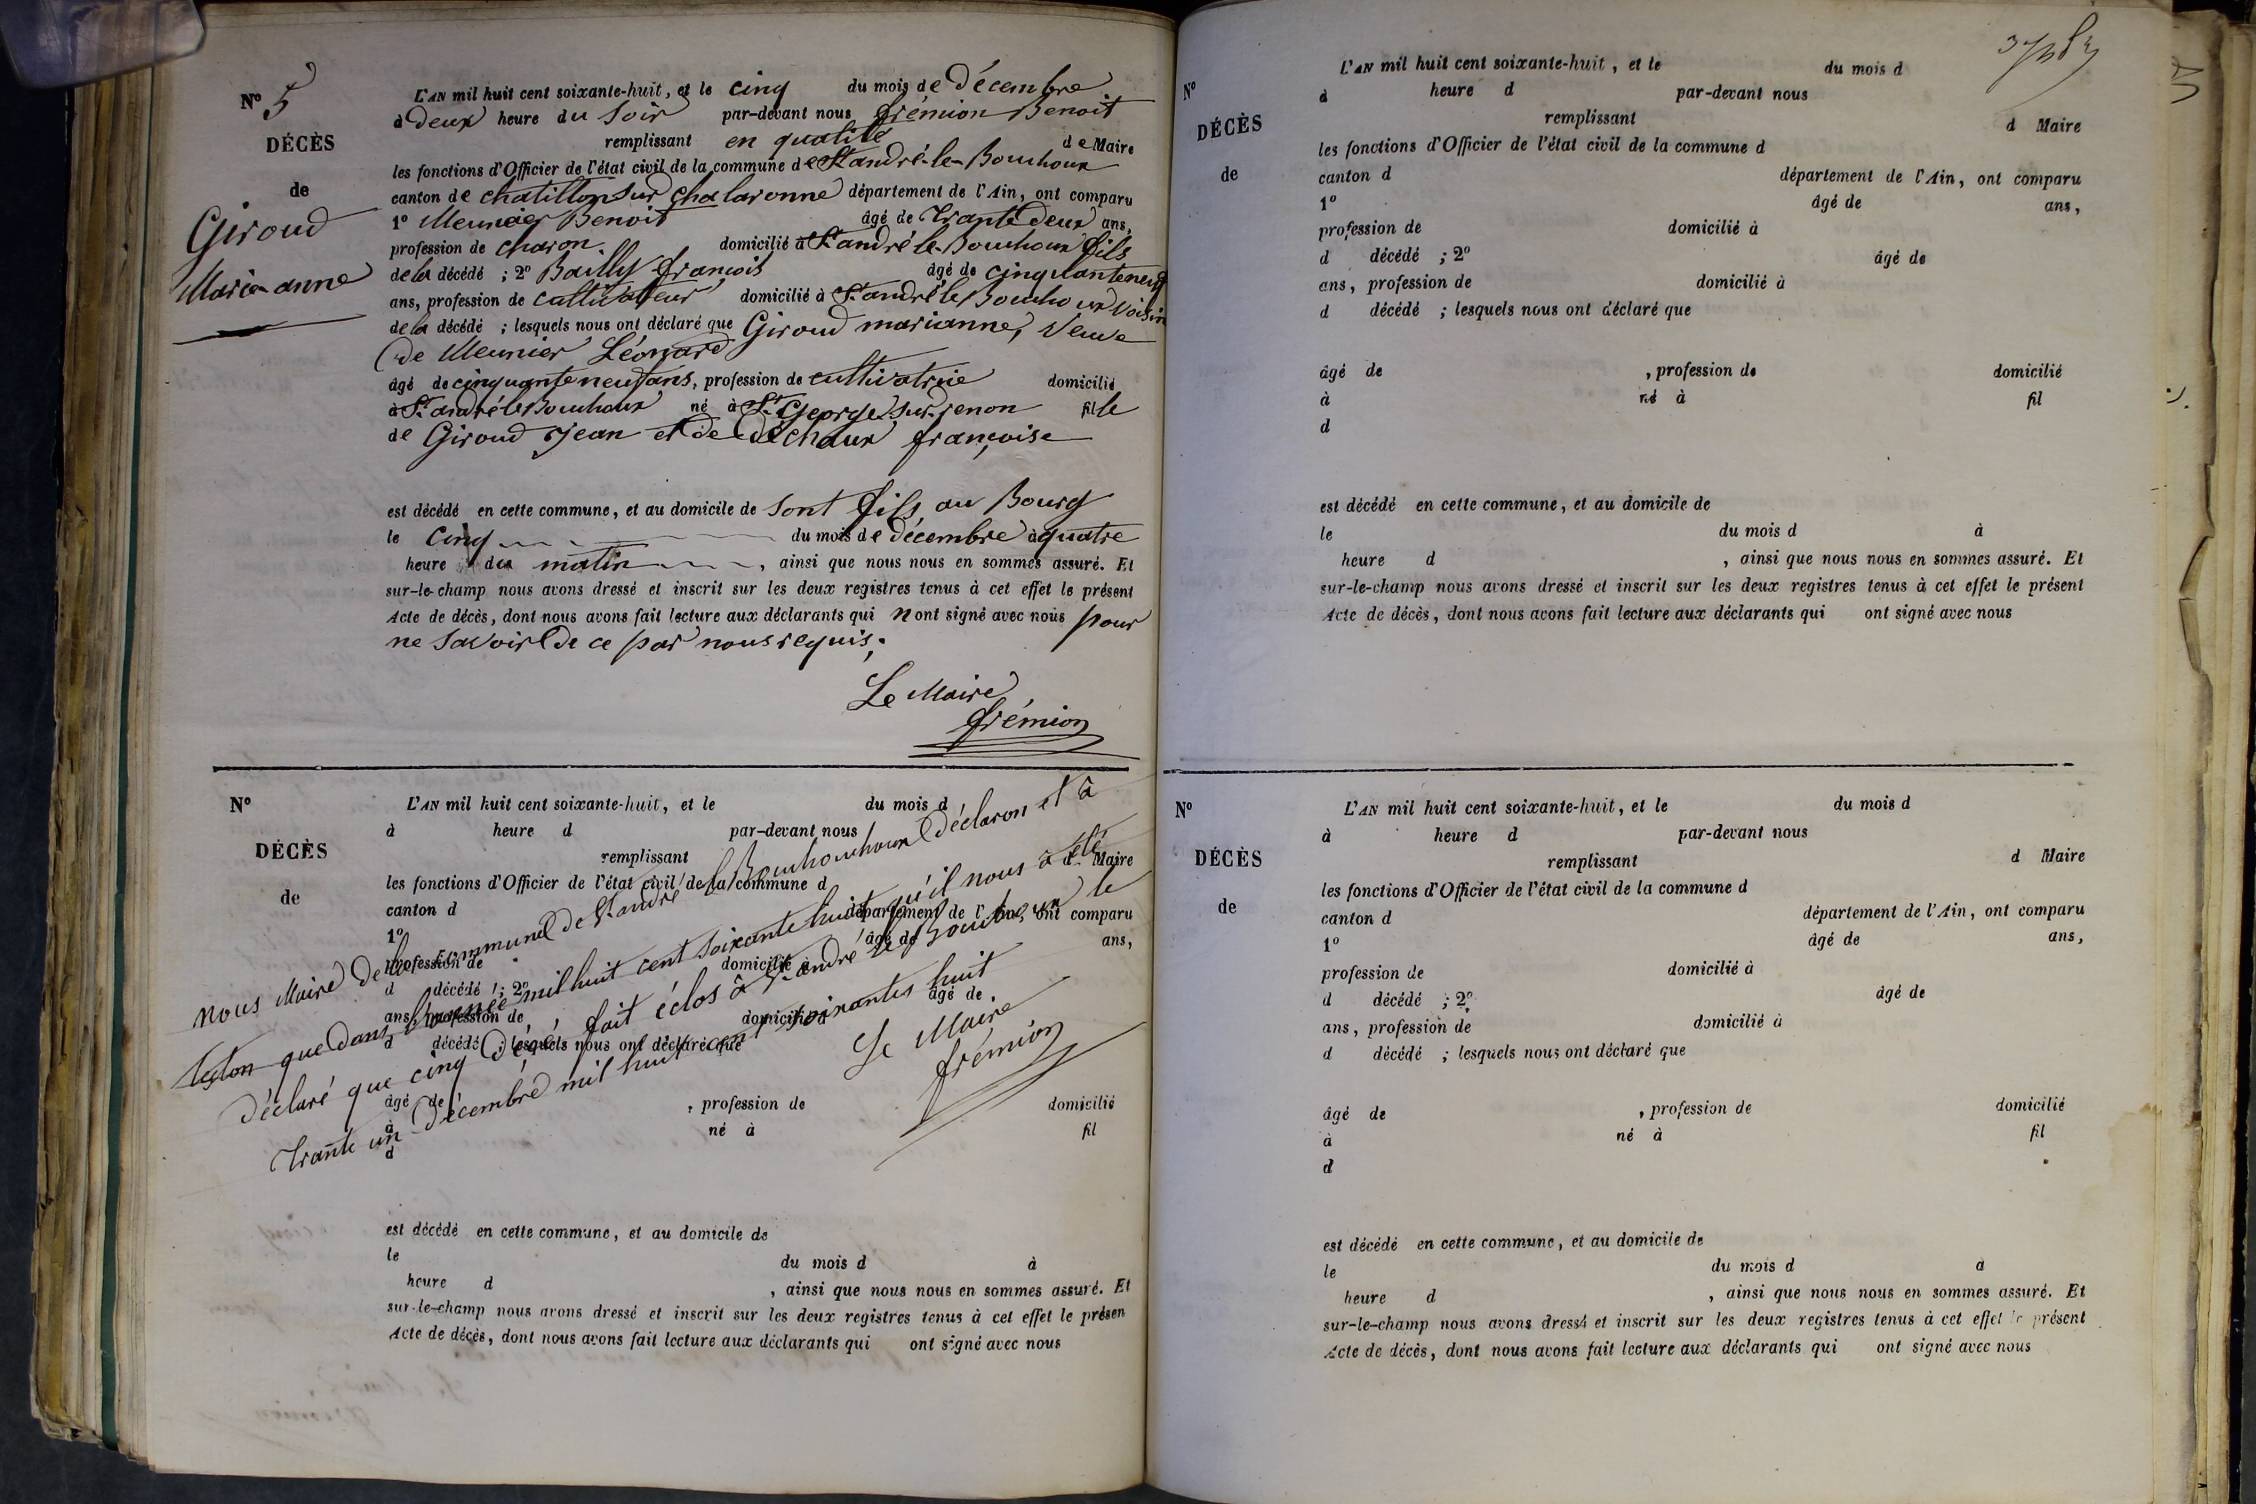 Nº 5
DÉCÈS
de
Giroud
Marie anne
L'AN mil huit cent soixante-huit, et le cinq du mois de Décembre
à deux heure du soir par-devant nous frémion Benoit
remplissant en qualité de Maire
les fonctions d'Officier de l'état civil de la commune de St andré-le-Bouchoux
canton de chatillon sur chalaronne département de l'Ain, ont comparu
1º Meunier Benoit âgé de trante deux ans,
profession de charon domicilié à St andré le Bouchoux fils
de la décédé ; 2º Bailly françois âgé de cinquante neuf
ans, profession de cultivateur domicilié à St andré le Bouchoux voisin
de la décédé ; lesquels nous ont déclaré que Giroud marianne, Veuve
de Meunier Léonard
âgé de cinquante neuf ans, profession de cultivatrice domicilié
à St andré le Bouchoux né à St George sur renon fille
de Giroud Jean et de Déchaux françoise
est décédé en cette commune, et au domicile de sont fils au Bourg
le cinq du mois de décembre à quatre
heure du matin, ainsi que nous nous en sommes assuré. Et
sur-le-champ nous avons dressé et inscrit sur les deux registres tenus à cet effet le présent
Acte de décès, dont nous avons fait lecture aux déclarants qui n ont signé avec nous pour
ne savoir de ce par nous requis;
Le Maire
frémion
Nº
DÉCÈS
de
L'AN mil huit cent soixante-huit, et le du mois d
à heure d par-devant nous
remplissant d Maire
les fonctions d'Officier de l'état civil de la commune d
canton d département de l'Ain, ont comparu
1º âgé de ans,
profession de domicilié à
d décédé ; 2º âgé de
ans, profession de domicilié à
d décédé ; lesquels nous ont déclaré que
âgé de , profession de domicilié
à né à fil
d
nous Maire de la commune de St andré le Bouchouhoux déclaron et à
teston que dans l'année mil huit cent soixante huit qu'il nous à été
déclaré que cinq Décé, fait éclos à St andré le Bouchoux le
trante un Décembre mil huit cent soixantes huit
Le Maire
frémion
est décédé en cette commune, et au domicile de
le du mois d à
heure d , ainsi que nous nous en sommes assuré. Et
sur-le-champ nous avons dressé et inscrit sur les deux registres tenus à cet effet le présen
Acte de décès, dont nous avons fait lecture aux déclarants qui ont signé avec nous
Nº
DÉCÈS
de
L'AN mil huit cent soixante-huit, et le du mois d
à heure d par-devant nous
remplissant d Maire
les fonctions d'Officier de l'état civil de la commune d
canton d département de l'Ain, ont comparu
1º âgé de ans,
profession de domicilié à
d décédé ; 2º âgé de
ans, profession de domicilié à
d décédé ; lesquels nous ont déclaré que
âgé de , profession de domicilié
à né à fil
d
est décédé en cette commune, et au domicile de
le du mois d à
heure d , ainsi que nous nous en sommes assuré. Et
sur-le-champ nous avons dressé et inscrit sur les deux registres tenus à cet effet le présent
Acte de décès, dont nous avons fait lecture aux déclarants qui ont signé avec nous
Nº
DÉCÈS
de
L'AN mil huit cent soixante-huit, et le du mois d
à heure d par-devant nous
remplissant d Maire
les fonctions d'Officier de l'état civil de la commune d
canton d département de l'Ain, ont comparu
1º âgé de ans,
profession de domicilié à
d décédé ; 2º âgé de
ans, profession de domicilié à
d décédé ; lesquels nous ont déclaré que
âgé de , profession de domicilié
à né à fil
d
est décédé en cette commune, et au domicile de
le du mois d à
heure d , ainsi que nous nous en sommes assuré. Et
sur-le-champ nous avons dressé et inscrit sur les deux registres tenus à cet effet le présent
Acte de décès, dont nous avons fait lecture aux déclarants qui ont signé avec nous